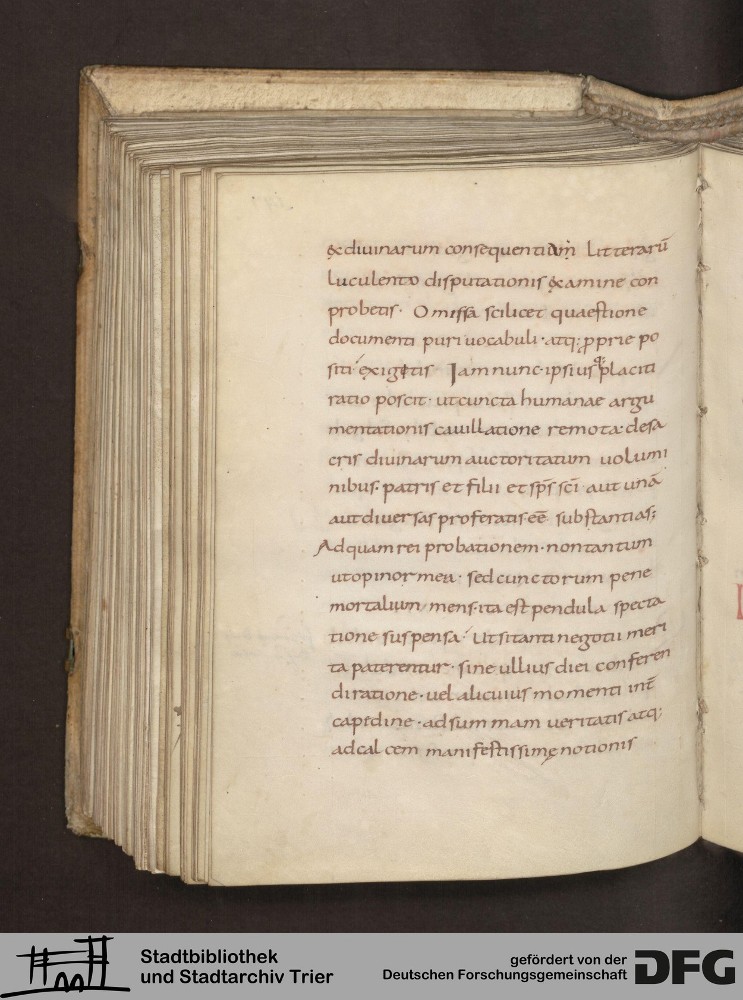 &diuinarum consequentiam litterarū
luculento disputationis &amine con
probetis· Omissa scilicet quaestione
documenti puri uocabuli· atq; pprie po
siti exigetis Iam nunc· ipsiusq; placiti
ratio poscit· ut cuncta humanae argu
mentationis cauillatione remota· desa
cris diuinarum auctoritatum uolumi
nibus· patris et filii et sp̄s sc̄i aut unā
aut diuersas proferatis eē substantias;
Ad quam rei probationem· non tantum
ut opinor mea· sed cunctorum pene
mortalium mens· ita est pendula specta
tione suspensa· Ut si tanti negotii meri
ta paterentur· sine ullius diei conferen
di ratione· uel alicuius momenti int̄
capidine· ad summam ueritatis atq;
ad calcem manifestissimę notionis
Stadtbibliothek
und Stadtarchiv Trier
gefördert von der
Deutschen Forschungsgemeinschaft
DFG